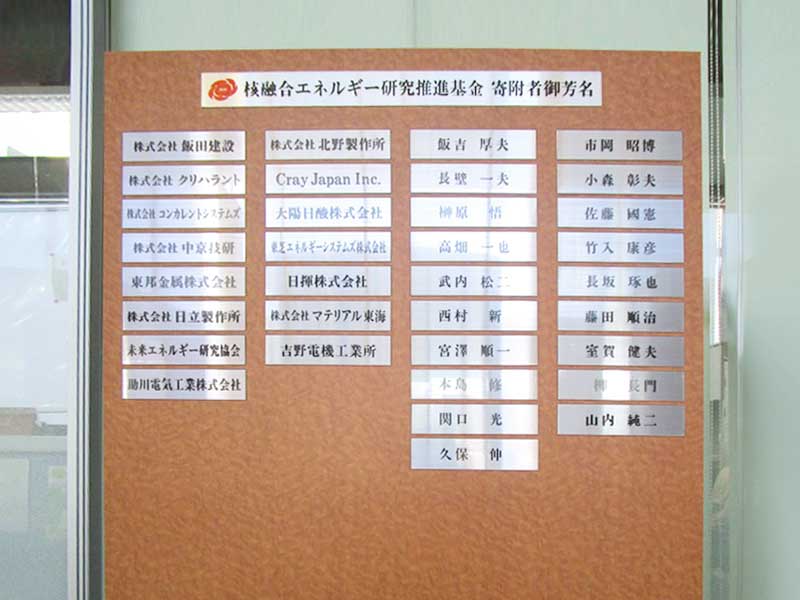 核融合エネルギー研究推進基金 寄附者御芳名
株式会社 飯田建設
株式会社 クリハラント
株式会社 コンカレントシステムズ
株式会社 中京技研
東邦金属株式会社
株式会社 日立製作所
未来エネルギー研究協会
助川電気工業株式会社
株式会社 北野製作所
Cray Japan Inc.
大陽日酸株式会社
東芝エネルギーシステムズ株式会社
日揮株式会社
株式会社 マテリアル東海
吉野電機工業所
飯吉 厚夫
長壁 一夫
榊原 悟
高畑 一也
武内 松二
西村 新
宮澤 順一
本島 修
関口 光
久保 伸
市岡 昭博
小森 彰夫
佐藤 國憲
竹入 康彦
長坂 琢也
藤田 順治
室賀 健夫
柳 長門
山内 純二